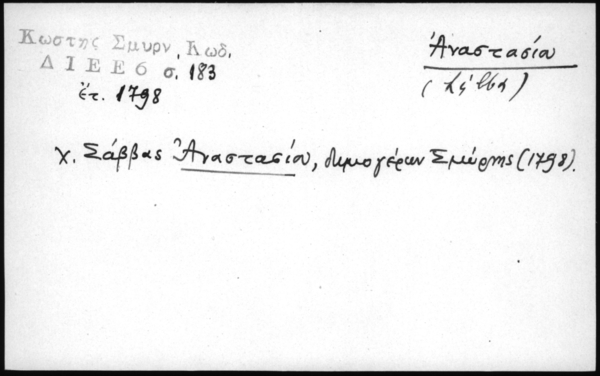 Κωστης Σμυρν. Κωδ.
ΔΙΕΕ6 σ. 183
ἔτ. 1798
Ἀναστασία
χ. Σάββας Ἀναστασίου, δημογέρων Σμύρνης (1798).